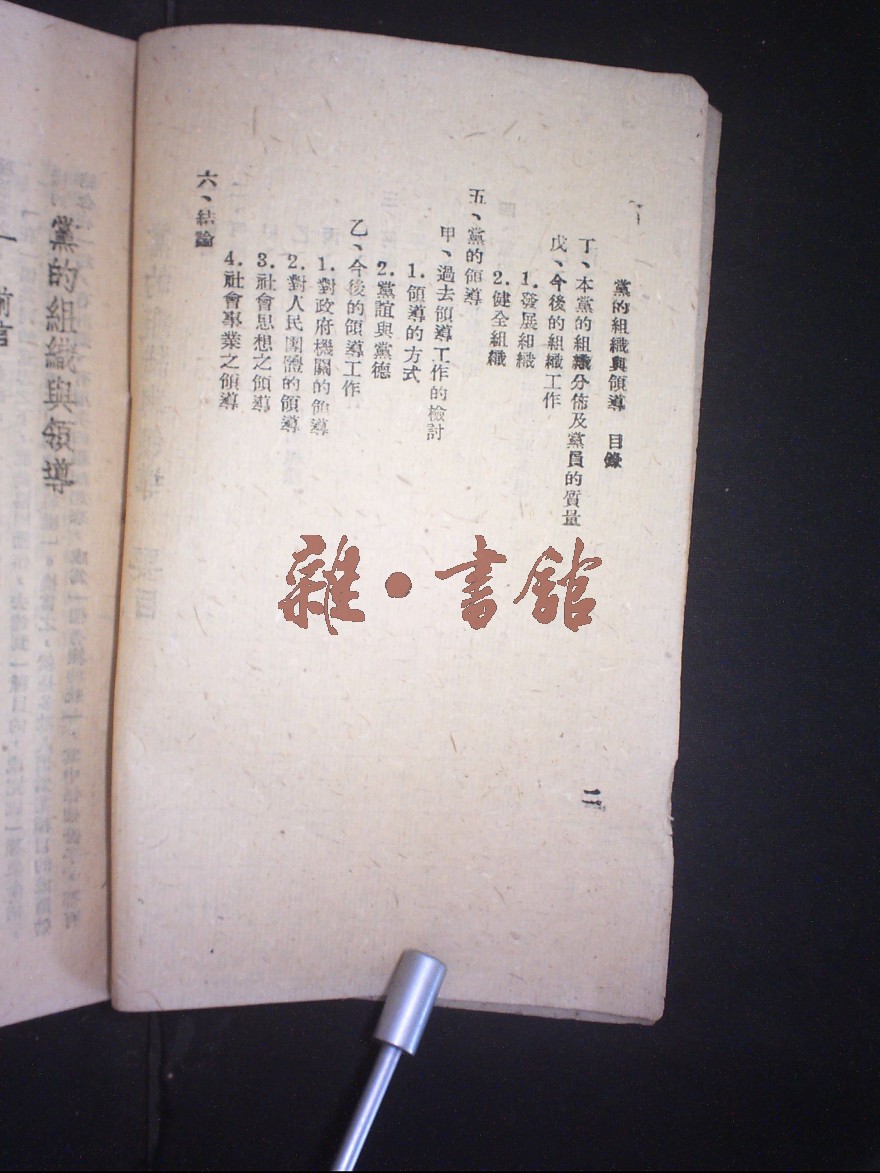 黨的組織與領導　目錄
丁、本黨的組織分佈及黨員的質量
戊、今後的組織工作
1.發展組織
2.健全組織
五、黨的領導
甲、過去領導工作的檢討
1.領導的方式
2.黨誼與黨德
乙、今後的領導工作
1.對政府機關的領導
2.對人民團體的領導
3.社會思想之領導
4.社會事業之領導
六、結論
二
黨的組織與領導
一　前言
雜・書館